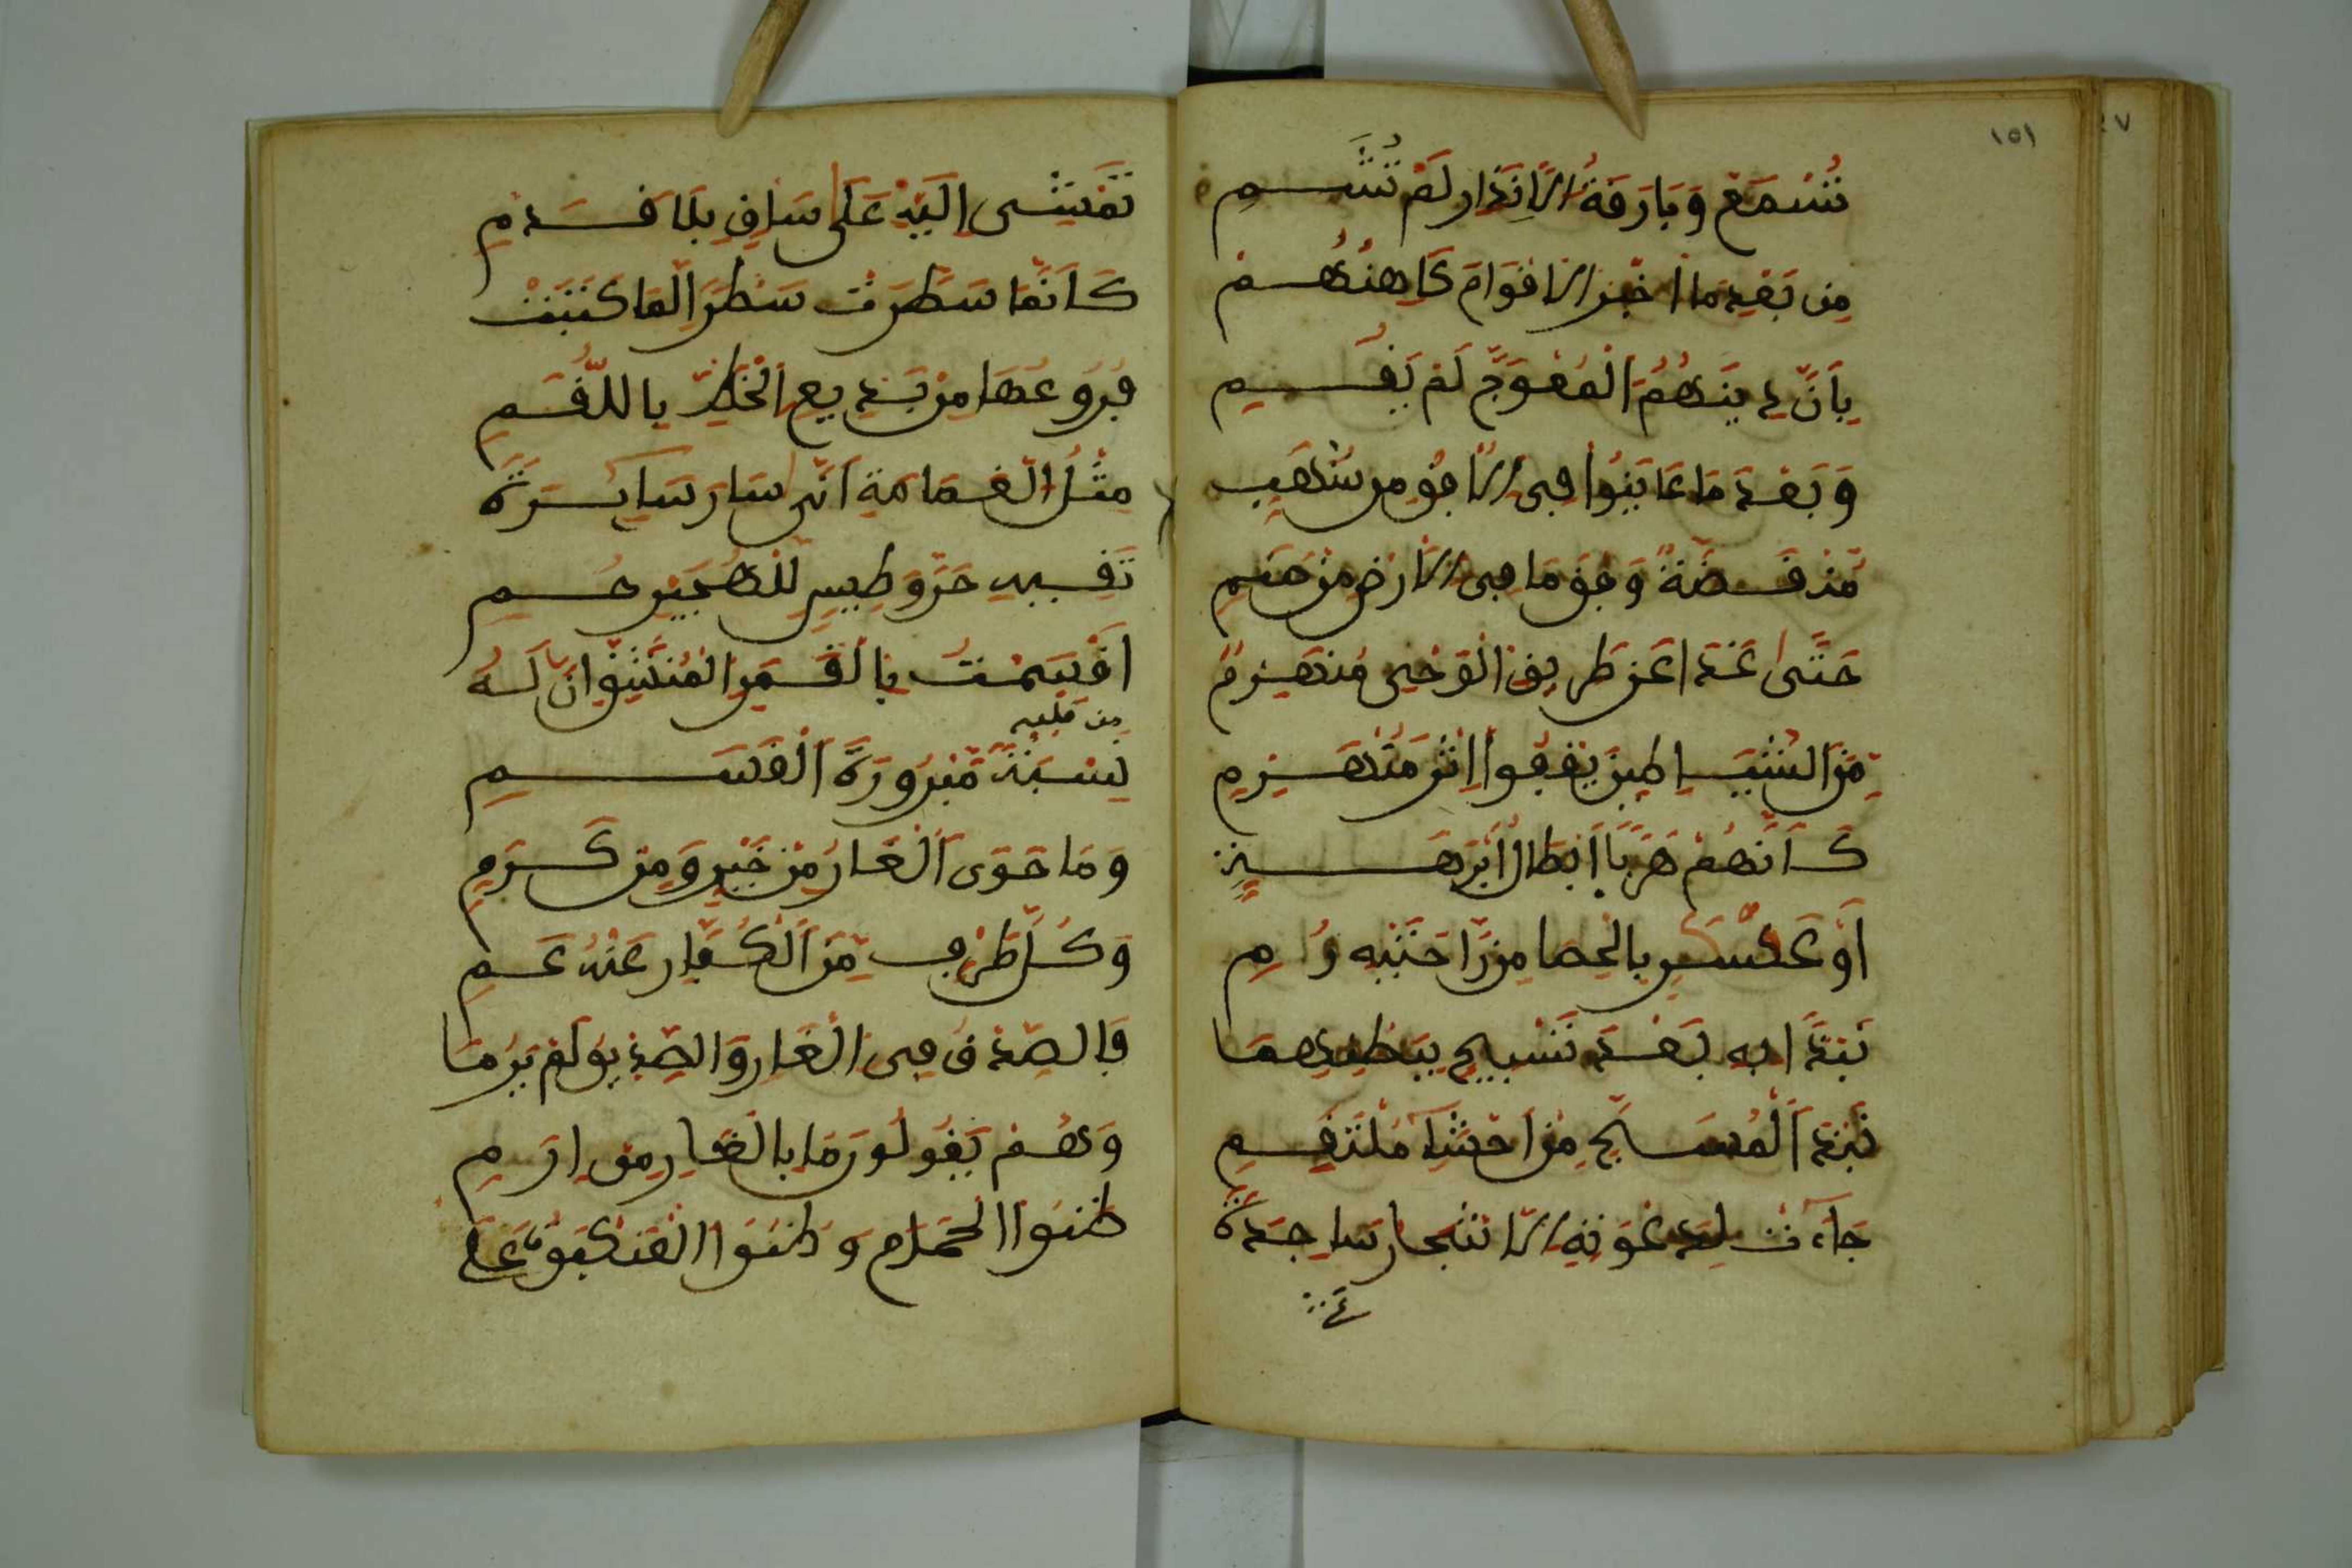 ١٥١
تُسْمَعْ وَبَارِقَةُ الْإِنْذَارِ لَمْ تُشَمِ
مِن بَعْدِ مَا أَخْبَرَ الْأَقْوَامَ كَاهِنُهُمْ
بِأَنَّ دِينَهُمُ الْمُعْوَجَّ لَمْ يَقُمِ
وَبَعْدَ مَا عَايَنُوا فِي الْأُفُقِ مِن شُهُبٍ
مُنْقَضَّةً وَفْقَ مَا فِي الْأَرْضِ مِنْ صَنَمِ
حَتَّى غَدَا عَن طَرِيقِ الْوَحْيِ مُنْهَزِمٌ
مِنَ الشَّيَاطِينِ يَقْفُوا إِثْرَ مُنْهَزِمِ
كَأَنَّهُمْ هَرَبًا أَبْطَالُ أَبْرَهَةٍ
أَوْ عَسْكَرٍ بِالْحَصَا مِن رَّاحَتَيْهِ رُمِ
نَبْذًا بِهِ بَعْدَ تَسْبِيحٍ بِبَطْنِهِمَا
نَبْذَ الْمُسَبِّحِ مِنْ أَحْشَاءِ مُلْتَقِمِ
جَاءَتْ لِدَعْوَتِهِ الْأَشْجَارُ سَاجِدَةً
تَمْشِى إِلَيْهِ عَلَى سَاقٍ بِلَا قَدَمِ
كَأَنَّمَا سَطَرَتْ سَطْرًا لِمَا كَتَبَتْ
فُرُوعُهَا مِنْ بَدِيعِ الْخَطِّ بِاللَّقَمِ
مِثْلُ الْغَمَامَةِ أَنَّى سَارَ سَايِرَةً
تَقِيهِ حَرَّ وَطِيسٍ لِلْهَجِيرِ حَمِ
أَقْسَمْتُ بِالْقَمَرِ الْمُنْشَقِّ إِنَّ لَهُ
مِن قَلْبِهِ
نِسْبَةً مَبْرُورَةَ الْقَسَمِ
وَمَا حَوَى الْغَارُ مِنْ خَيْرٍ وَمِن كَرَمِ
وَكُلُّ طَرْفٍ مِنَ الْكُفَّارِ عَنْهُ عَمِ
فَالصِّدْقُ فِي الْغَارِ وَالصِّدِّيقُ لَمْ يَرِمَا
وَهُمْ يَقُولُونَ مَا بِالْغَارِ مِن أَرِمِ
ظَنُّوا الْحَمَامَ وَظَنُّوا الْعَنْكَبُوتَ عَلَى